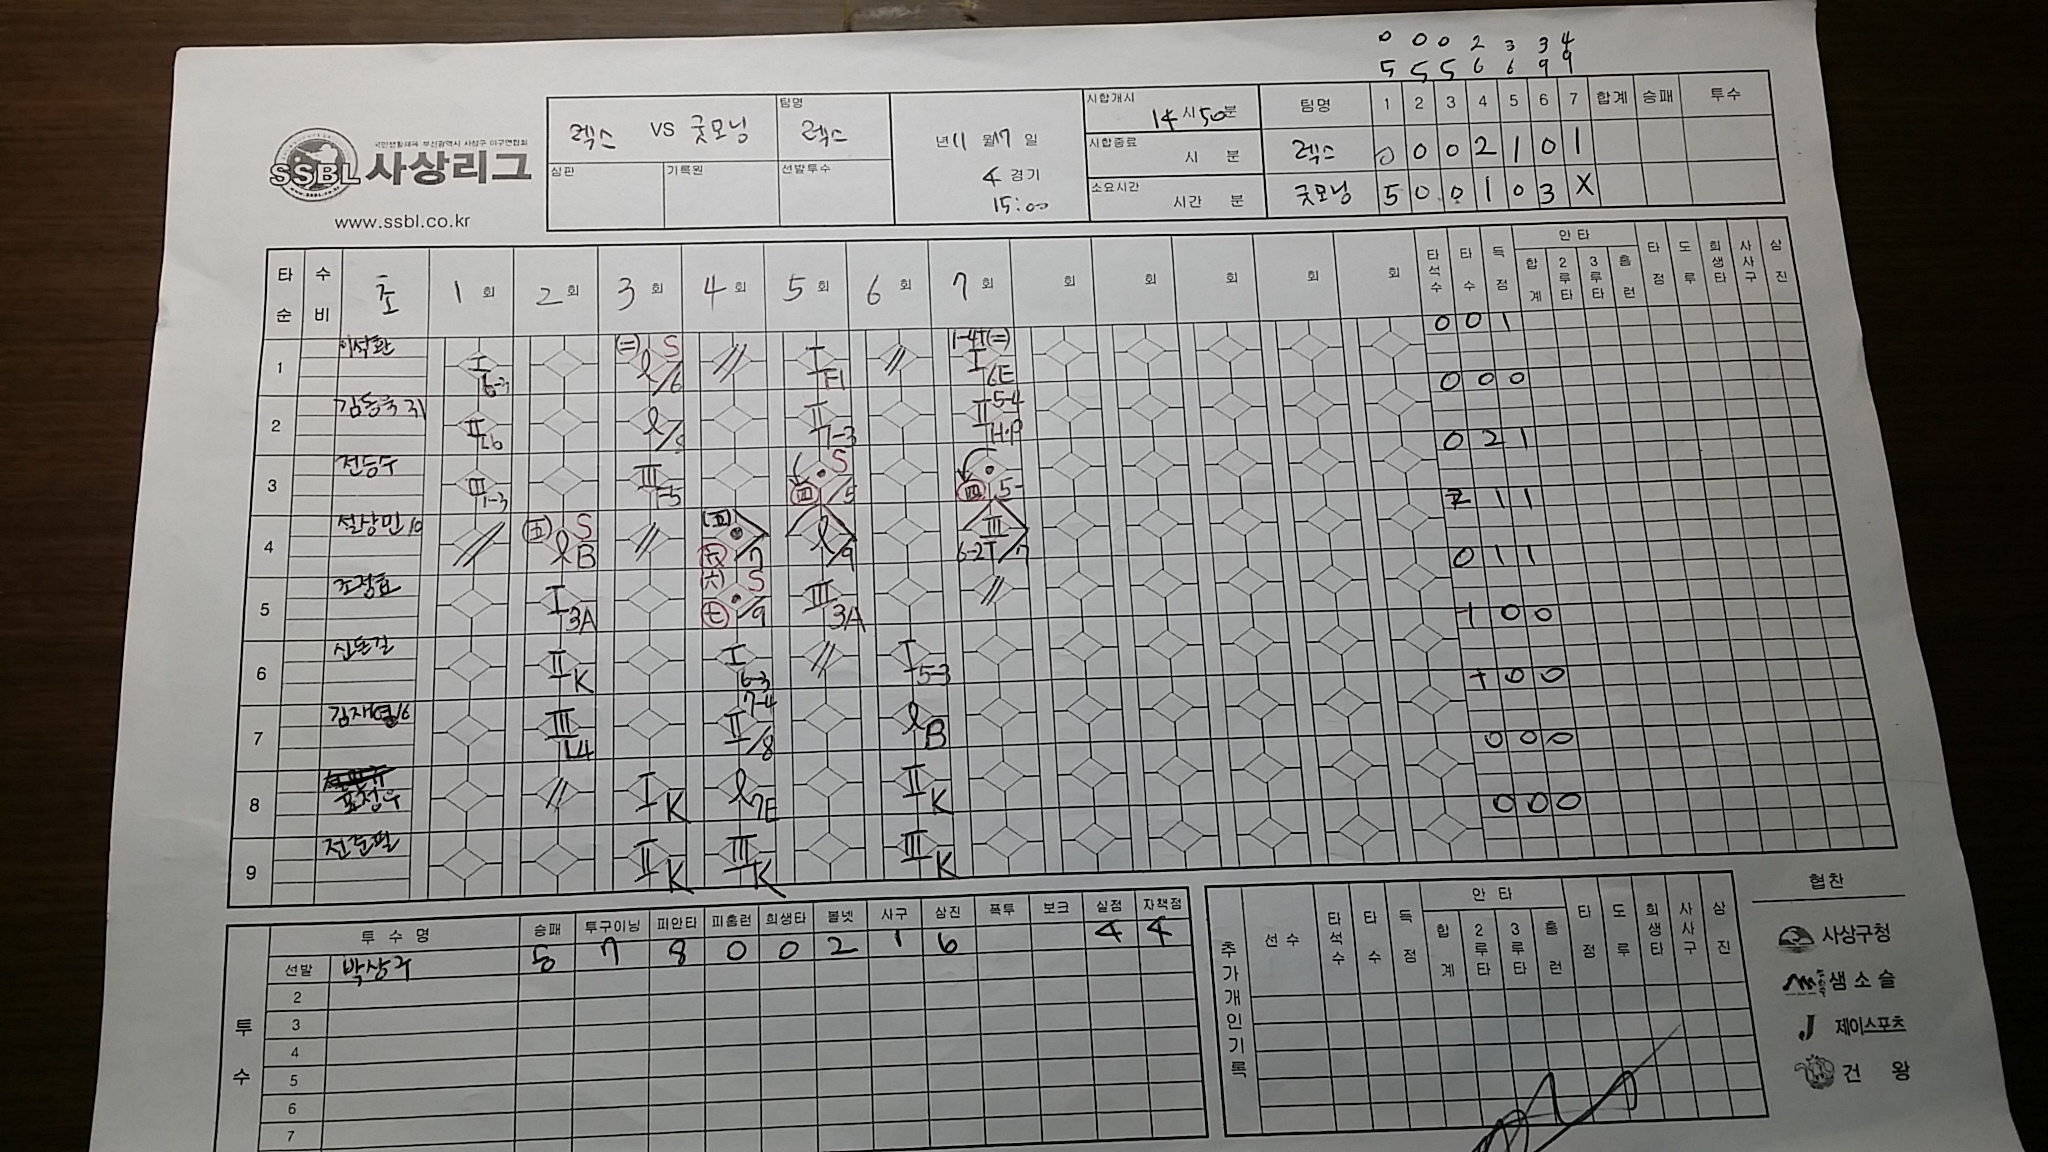 0 0 0 2 3 3 4
5 5 5 6 6 9 9
SSBL
국민생활체육 부산광역시 사상구 야구연합회
사상리그
www.ssbl.co.kr
렉스 VS 굿모닝
팀명
렉스
심판
기록원
선발투수
년 11 월 17 일
4 경기
15:00
시합개시
14 시 50 분
시합종료
시 분
소요시간
시간 분
팀명 1 2 3 4 5 6 7 합계 승패 투수
렉스 0 0 0 2 1 0 1
굿모닝 5 0 0 1 0 3 X
타순 수비 초 1 회 2 회 3 회 4 회 5 회 6 회 7 회 회 회 회 회 회 타석수 타수 득점 안타 합계 2루타 3루타 홈런 타점 도루 희생타 사사구 삼진
1 I 6-3 (二) S l /6 // I F1 // 1-4T(二) I 6E 0 0 1
2 II l /5 II 1-3 5-4 II H.P 0 0 0
3 전등수 III 1-3 III -5 S 四 /5 四 5- 0 2 1
4 설상민 10 // (五) S l B // (五) 六 /7 l /9 III 6-2T /7 1 1
5 I 3A (六) S 七 /9 III 3A // 0 1 1
6 II K I 6-3 // I 5-3 0 0
7 III L4 7-4 II /8 l B 0 0
8 표정우 // I K l 7E II K 0 0 0
9 II K III K III K 0 0 0
투수 투수명 승패 투구이닝 피안타 피홈런 희생타 볼넷 사구 삼진 폭투 보크 실점 자책점
선발 7 8 0 0 2 1 6 4 4
2
3
4
5
6
7
추가개인기록 선수 타석수 타수 득점 안타 합계 2루타 3루타 홈런 타점 도루 희생타 사사구 삼진
협찬
사상구청
샘소슬
제이스포츠
건왕